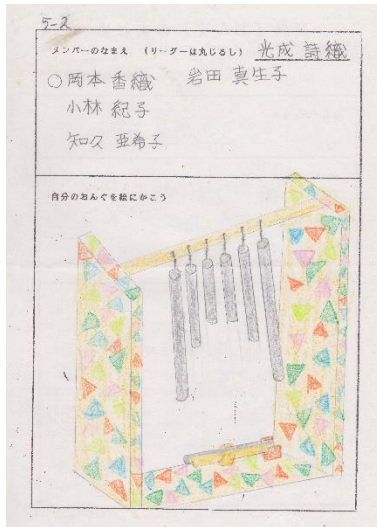 5-2
メンバーのなまえ (リーダーは丸じるし) 光成 詩織
○岡本 香織 岩田 真生子
小林 紀子
知久 亜希子
自分のおんぐを絵にかこう